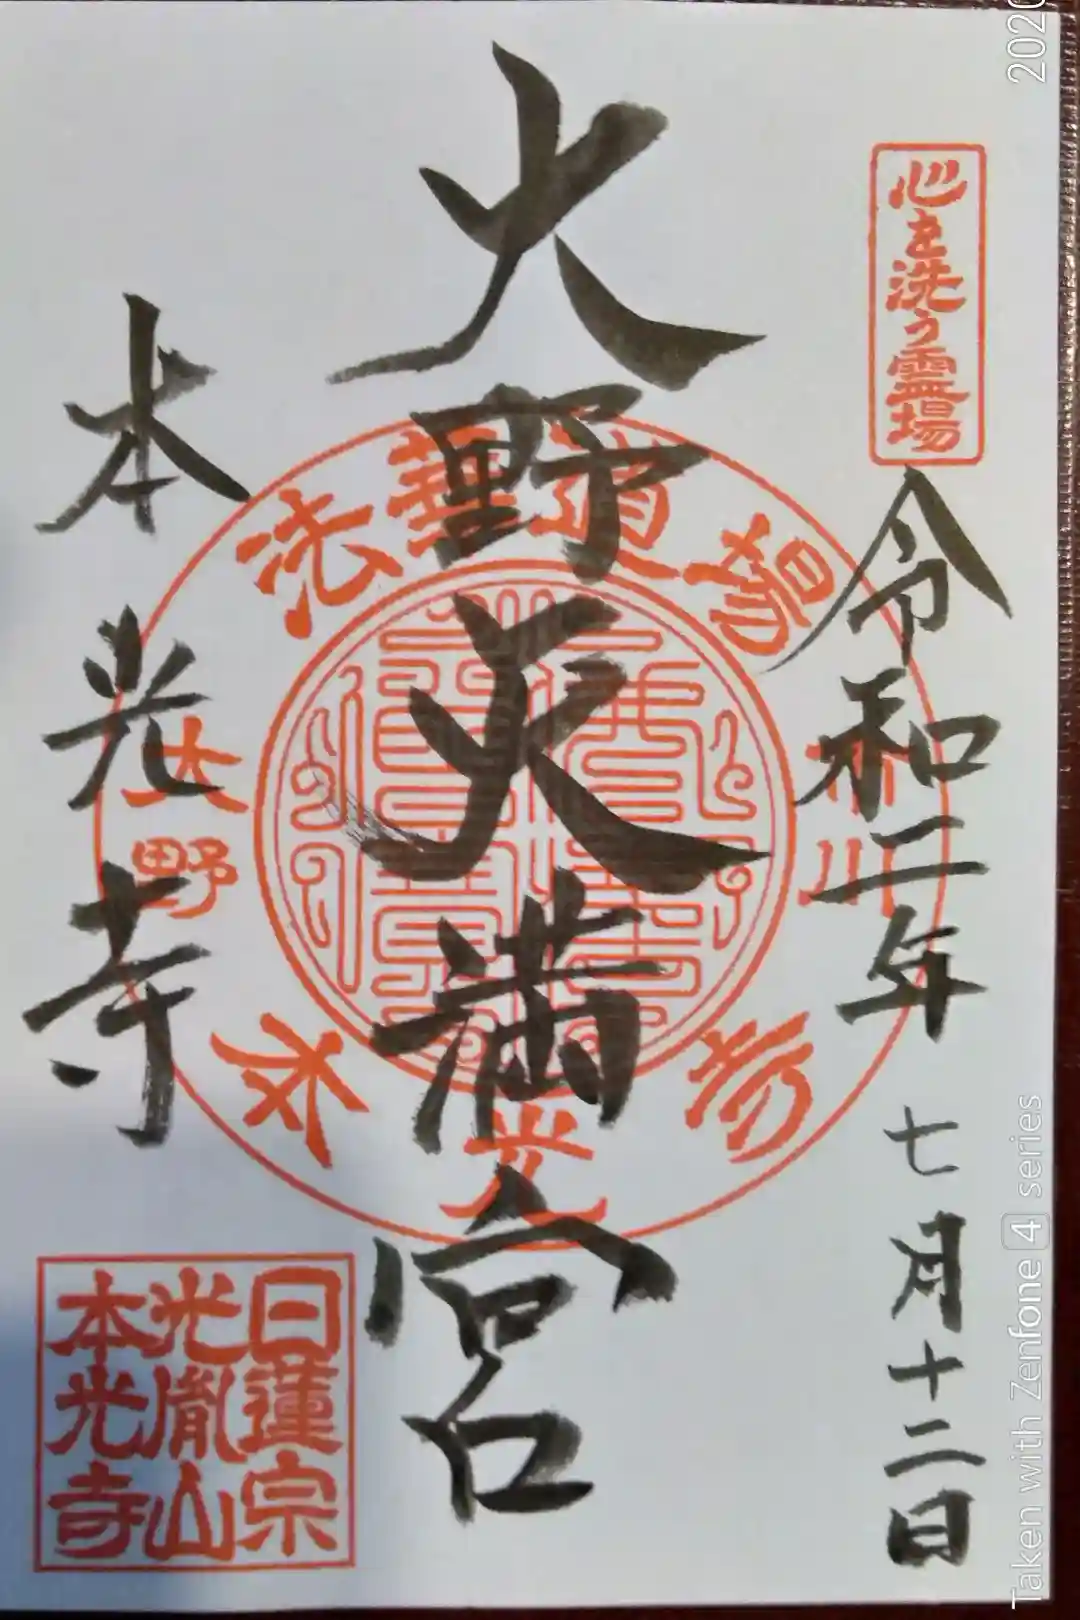 心を洗う霊場
令和二年 七月十二日
大野天満宮
本光寺
法華道場
市川
大野
本光寺
日蓮宗
光胤山
本光寺
Taken with Zenfone 4 series
2020